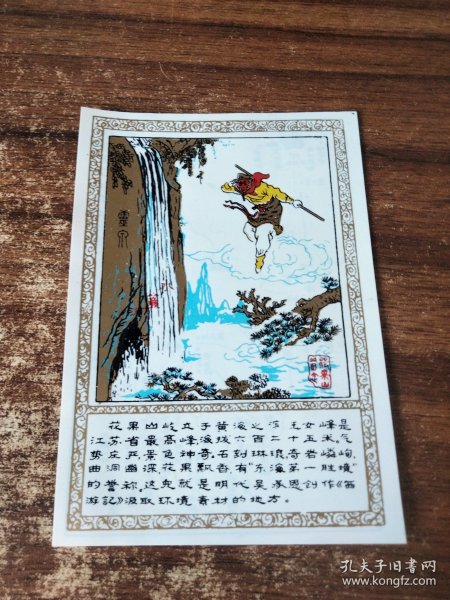 靈泉
花果山屹立于黄海之滨 玉女峰是
江苏省最高峰海拔六百二十五米。气
势庄严景色神奇石刻琳琅奇岩嶙峋
曲洞幽深花果飘香有"东海第一胜境"
的誉称,这儿就是明代吴承恩创作《西
游記》汲取环境素材的地方。
孔夫子旧书网
www.kongfz.com